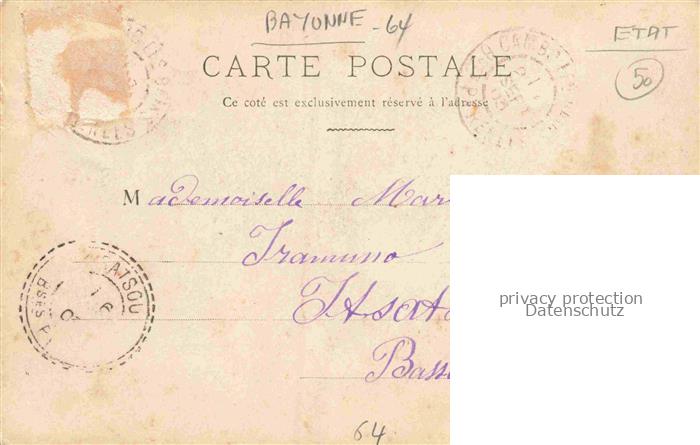 BAYONNE - 64
ETAT
50
CARTE POSTALE
Ce coté est exclusivement réservé à l'adresse
Mademoiselle Mar
Iramuno
Itsat
Bass
64
privacy protection
Datenschutz